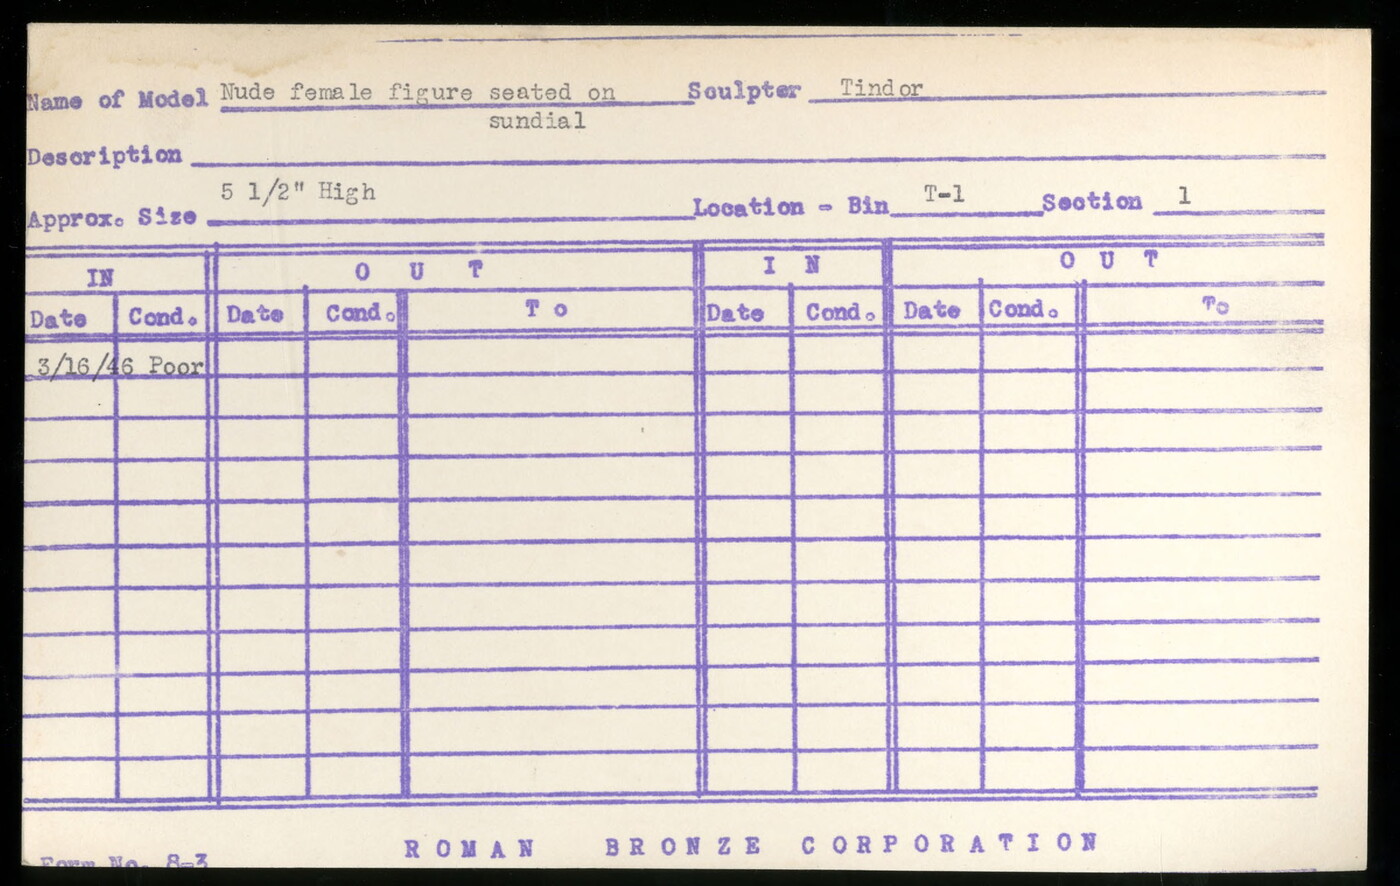 Name of Model Nude female figure seated on Sculpter Tindor
sundial
Description
Approx. Size 5 1/2" High Location - Bin T-1 Section 1
IN O U T I N O U T
Date Cond. Date Cond. T o Date Cond. Date Cond. To
3/16/46 Poor
ROMAN BRONZE CORPORATION
Form No. 8-3